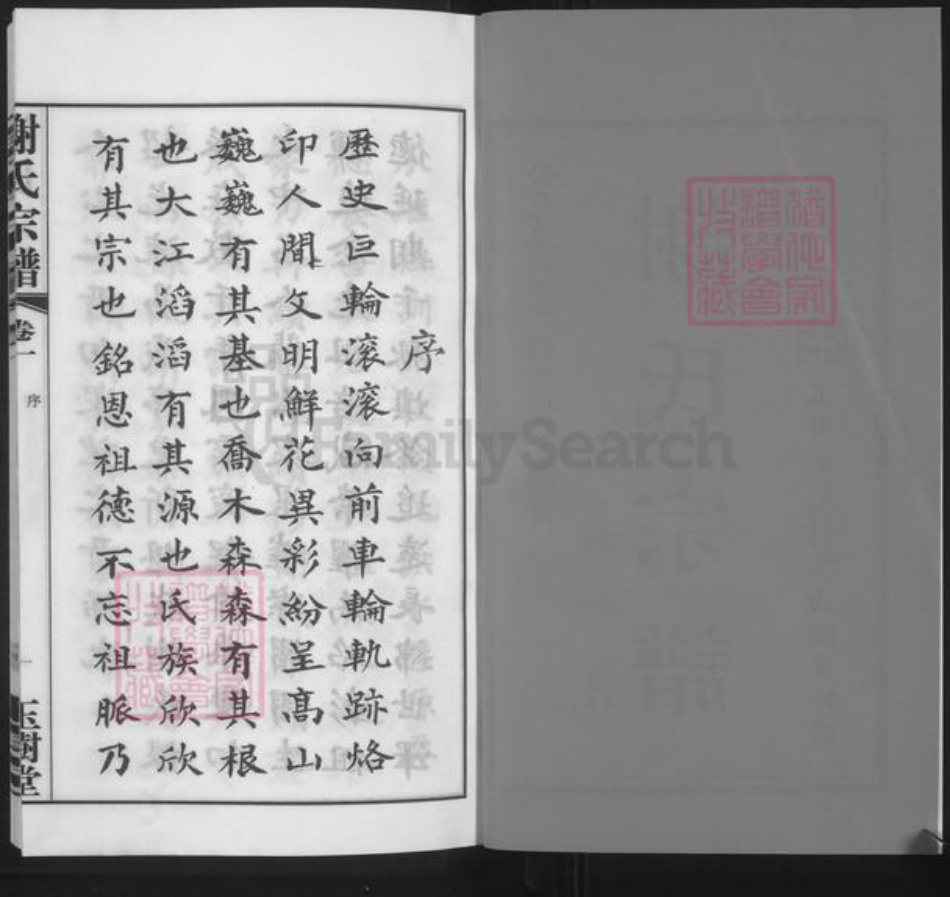 序
歷史巨輪滾滾向前車輪軌跡烙
印人間文明鮮花異彩紛呈高山
巍巍有其基也喬木森森有其根
也大江滔滔有其源也氏族欣欣
有其宗也銘恩祖德不忘祖脈乃
謝氏宗譜
卷一
序
一
玉樹堂
氏
宗
譜
FamilySearch